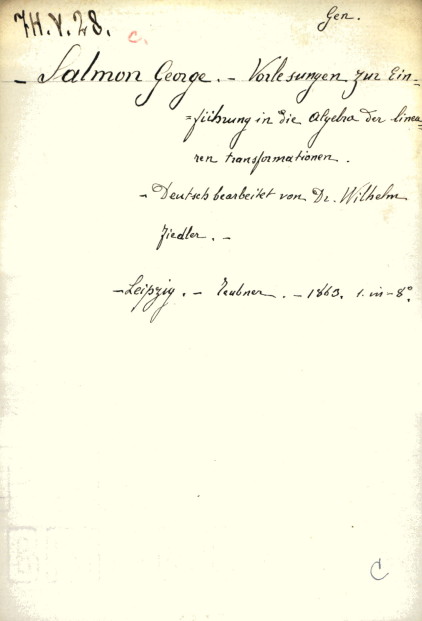 Gen.
7H.V.28. C.
- Salmon George. - Vorlesungen zur Ein-
=führung in die Algebra der linea-
ren transformationen.
- Deutsch bearbeitet von Dr. Wilhelm
Fiedler. -
- Leipzig. - Teubner. - 1863. 1. in-8°.
C